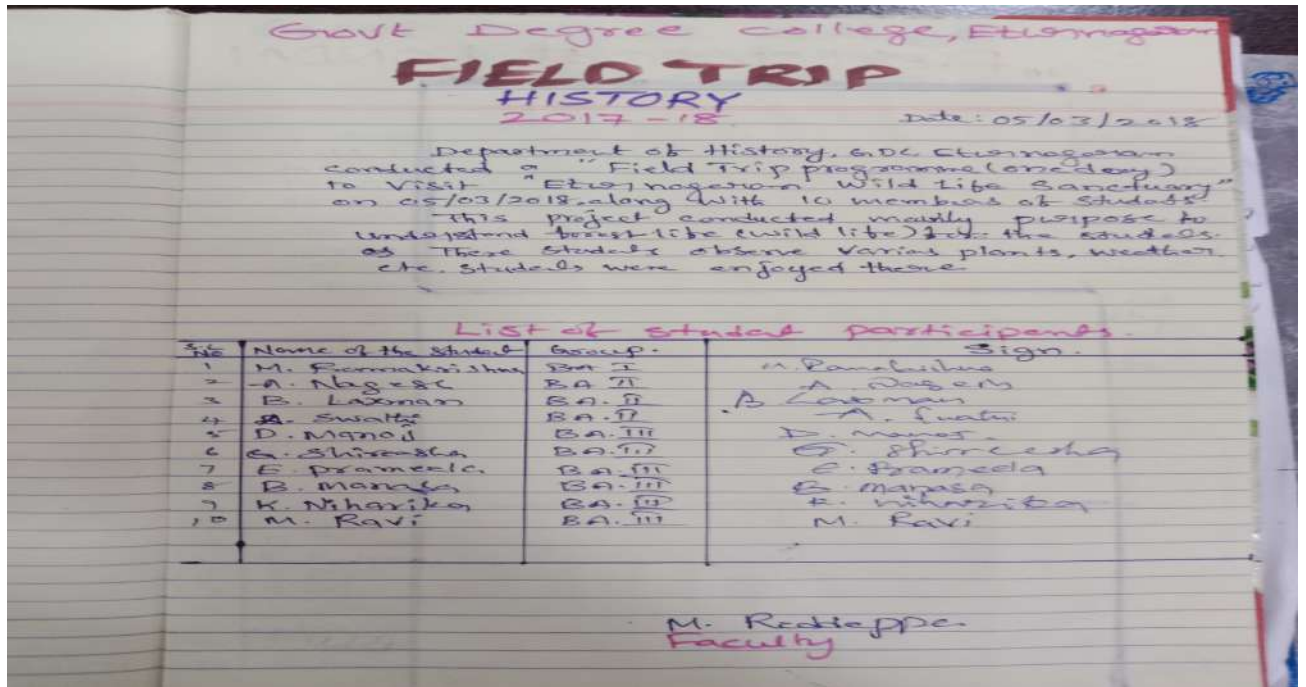 Govt Degree college, Eturnagaram
FIELD TRIP
HISTORY
2017-18
Date: 05/03/2018
Department of History, GDC Eturnagaram
conducted a "Field Trip programme (one day)
to visit "Eturnagaram Wild Life Sanctuary"
on 05/03/2018. along with 10 membras of students
This project conducted mainly purpose to
understand forest life (wild life) for the students.
as There students observe varias plants, weather
etc. students were enjoyed there
List of student participents.
S.L No Name of the student Group. Sign.
1 M. Ramakrishna BA I M. Ramakrishna
2 A. Nagesh BA II A. Nagesh
3 B. Laxman BA. II B Laxman
4 A. Swathi BA. II A. Swathi
5 D. Manoj BA. III D. Manoj.
6 G. Shireesha BA. III G. Shireesha
7 E. Prameela BA. III E. Prameela
8 B. manasa BA. III B. manasa
9 K. Niharika BA. III K. Niharika
10 M. Ravi BA. III M. Ravi
M. Rediappa
Faculty